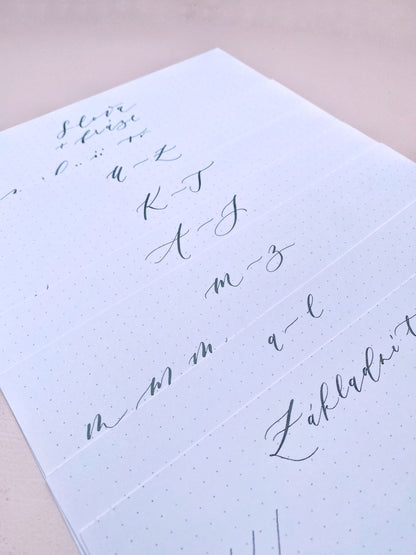 Slova
+ fráze
U – Z
K – T
A – J
m – z
a – l
m m m
Základní t